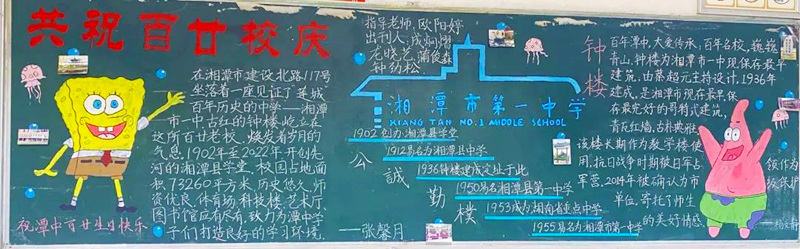 共祝百廿校庆
在湘潭市建设北路117号
坐落着一座见证了莲城
百年历史的中学——湘潭
市一中古红的钟楼屹立在
这所百廿老校,焕发着岁月的
气息。1902年至2022年开创先
河的湘潭县学堂,校园占地面
积73260平方米,历史悠久,师
资优良,体育场,科技楼,艺术厅
图书馆应有尽有,致力为潭中学
子们打造良好的学习环境
祝潭中百廿生日快乐
——张馨月
指导老师:欧阳婷
出刊人:成炯熠
龙晓多 蒲俊森
钟劲松
湘潭市第一中学
XIANG TAN NO.1 MIDDLE SCHOOL
1902创办湘潭县学堂
1912易名为湘潭县中学
1936钟楼建成定址于此
1950易名湘潭县第一中学
1953成为湖南省重点中学
1955易名为湘潭市第一中学
公诚勤
楼
钟楼
百年潭中,大爱传承,百年名校,巍巍
青山,钟楼为湘潭市一中现保存最早
建筑,由蔡超元主持设计.1936年
建成,是湘潭市现存最早保
存最完好的哥特式建筑,
青瓦红墙,古朴典雅
该楼长期作为教学楼使
用,抗日战争时期被日军占
军营,2014年被确认为市
单位,寄托了师生
的美好情感